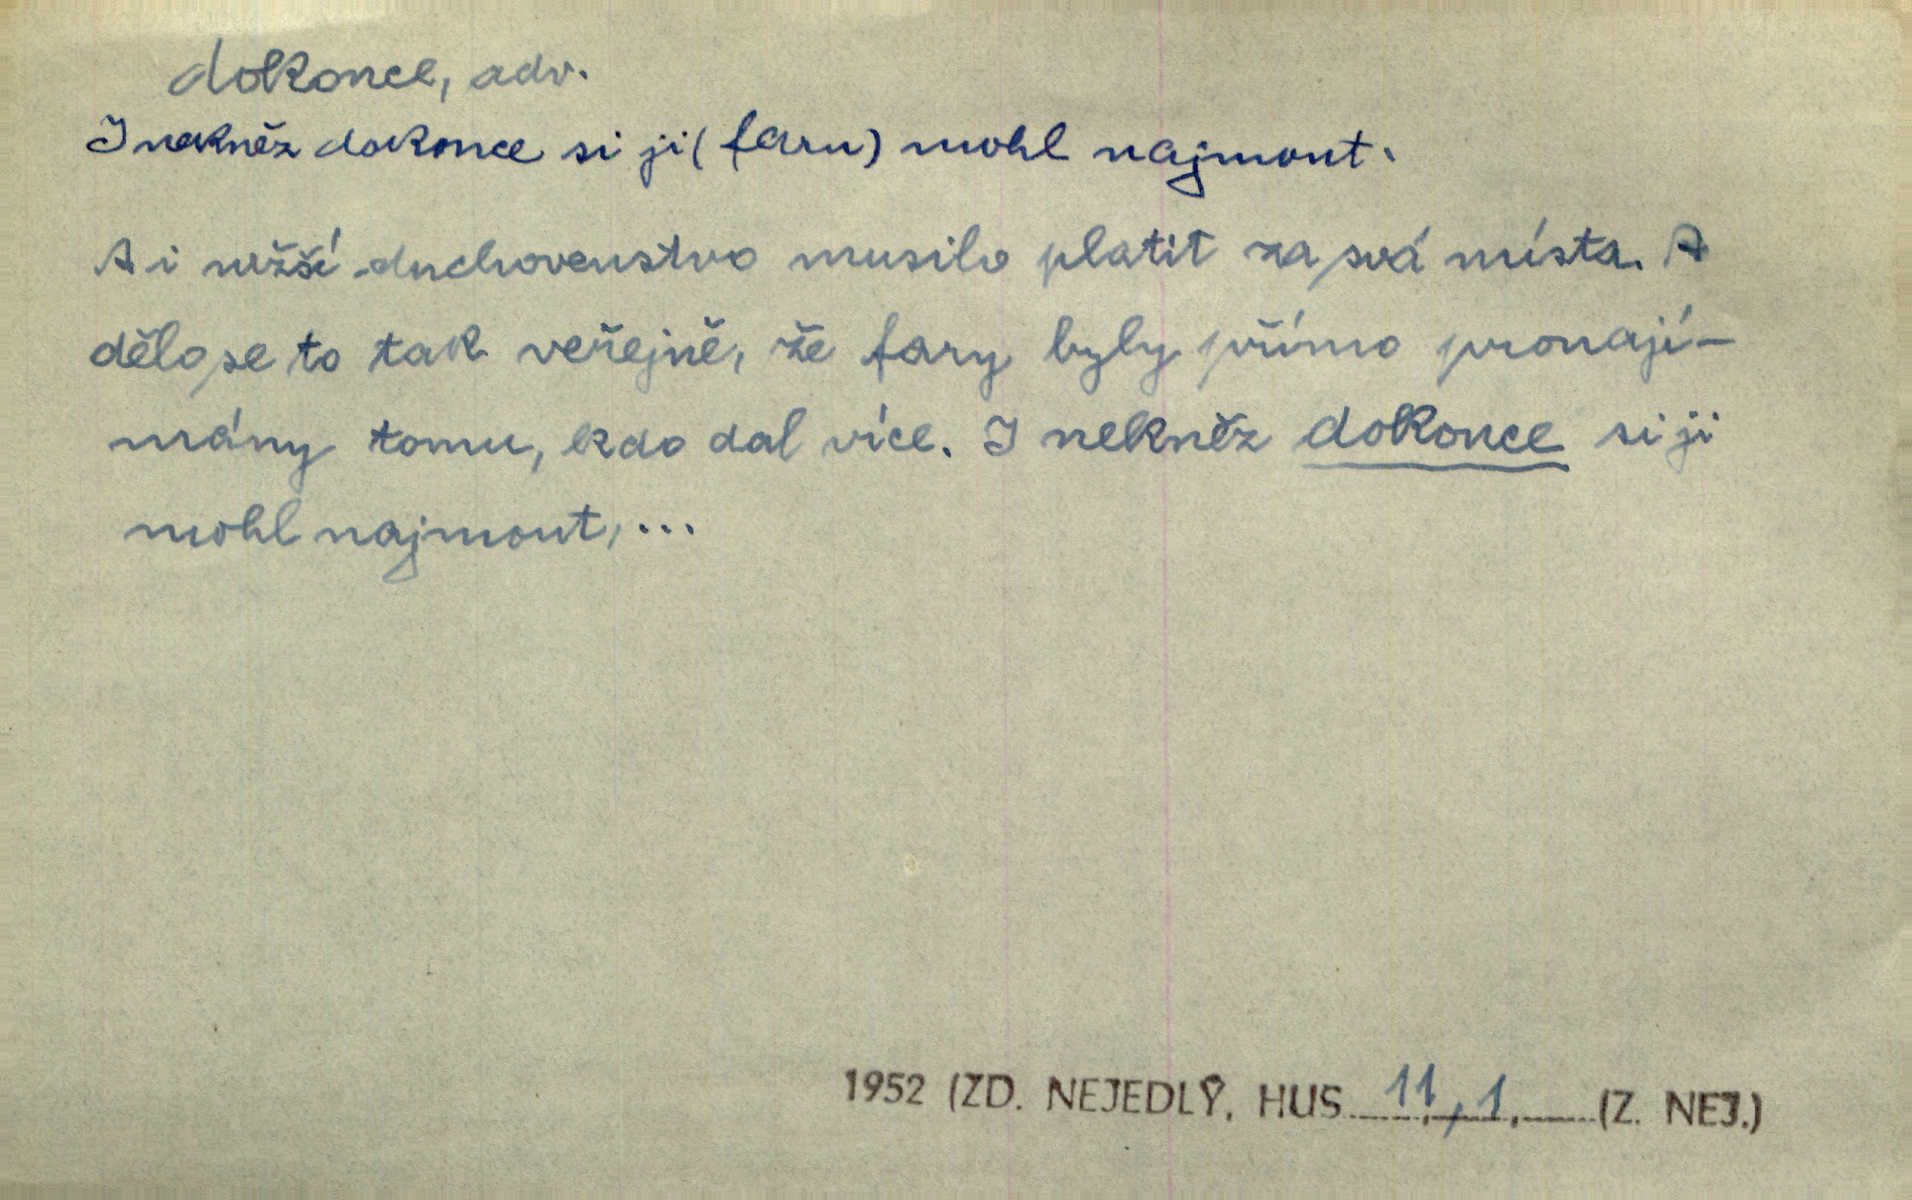 dokonce, adv.
I nekněz dokonce si ji (faru) mohl najmout.
A i nižší duchovenstvo musilo platit za svá místa. A
dělo se to tak veřejně, že fary byly přímo pronají-
mány tomu, kdo dal více. I nekněz dokonce si ji
mohl najmout, ...
1952 (ZD. NEJEDLÝ, HUS 11, 1, (Z. NEJ.)